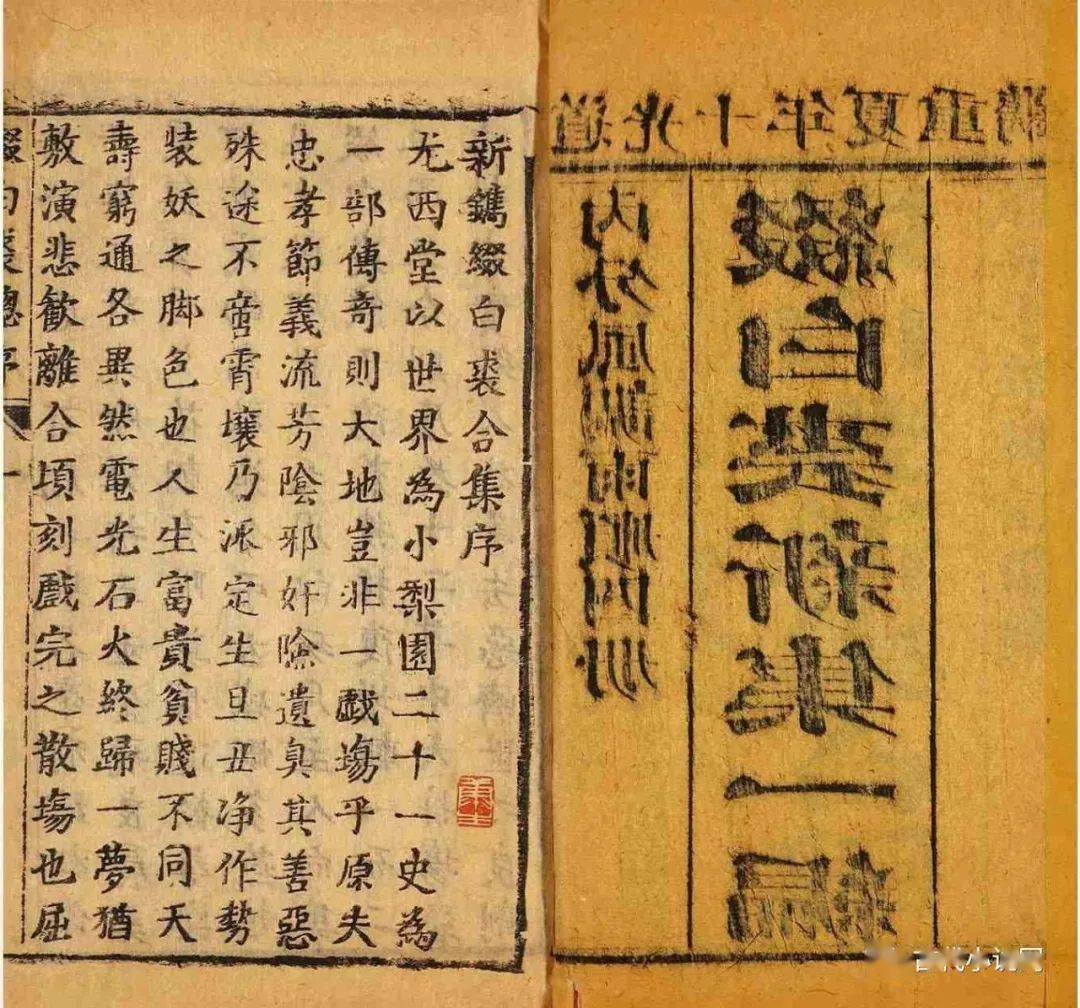 道光十年夏重鐫
綴白裘新集一編
内分風調雨
新鐫綴白裘合集序
尤西堂以世界為小梨園二十一史為
一部傳奇則大地豈非一戯塲乎原夫
忠孝節義流芳陰邪奸險遺臭其善惡
殊途不啻霄壤乃派定生旦丑净作勢
装妖之脚色也人生富貴貧賤不同天
壽窮通各異然電光石火終歸一夢猶
敷演悲歡離合頃刻戲完之散塲也屈
綴白裘總序 一
古代小说网